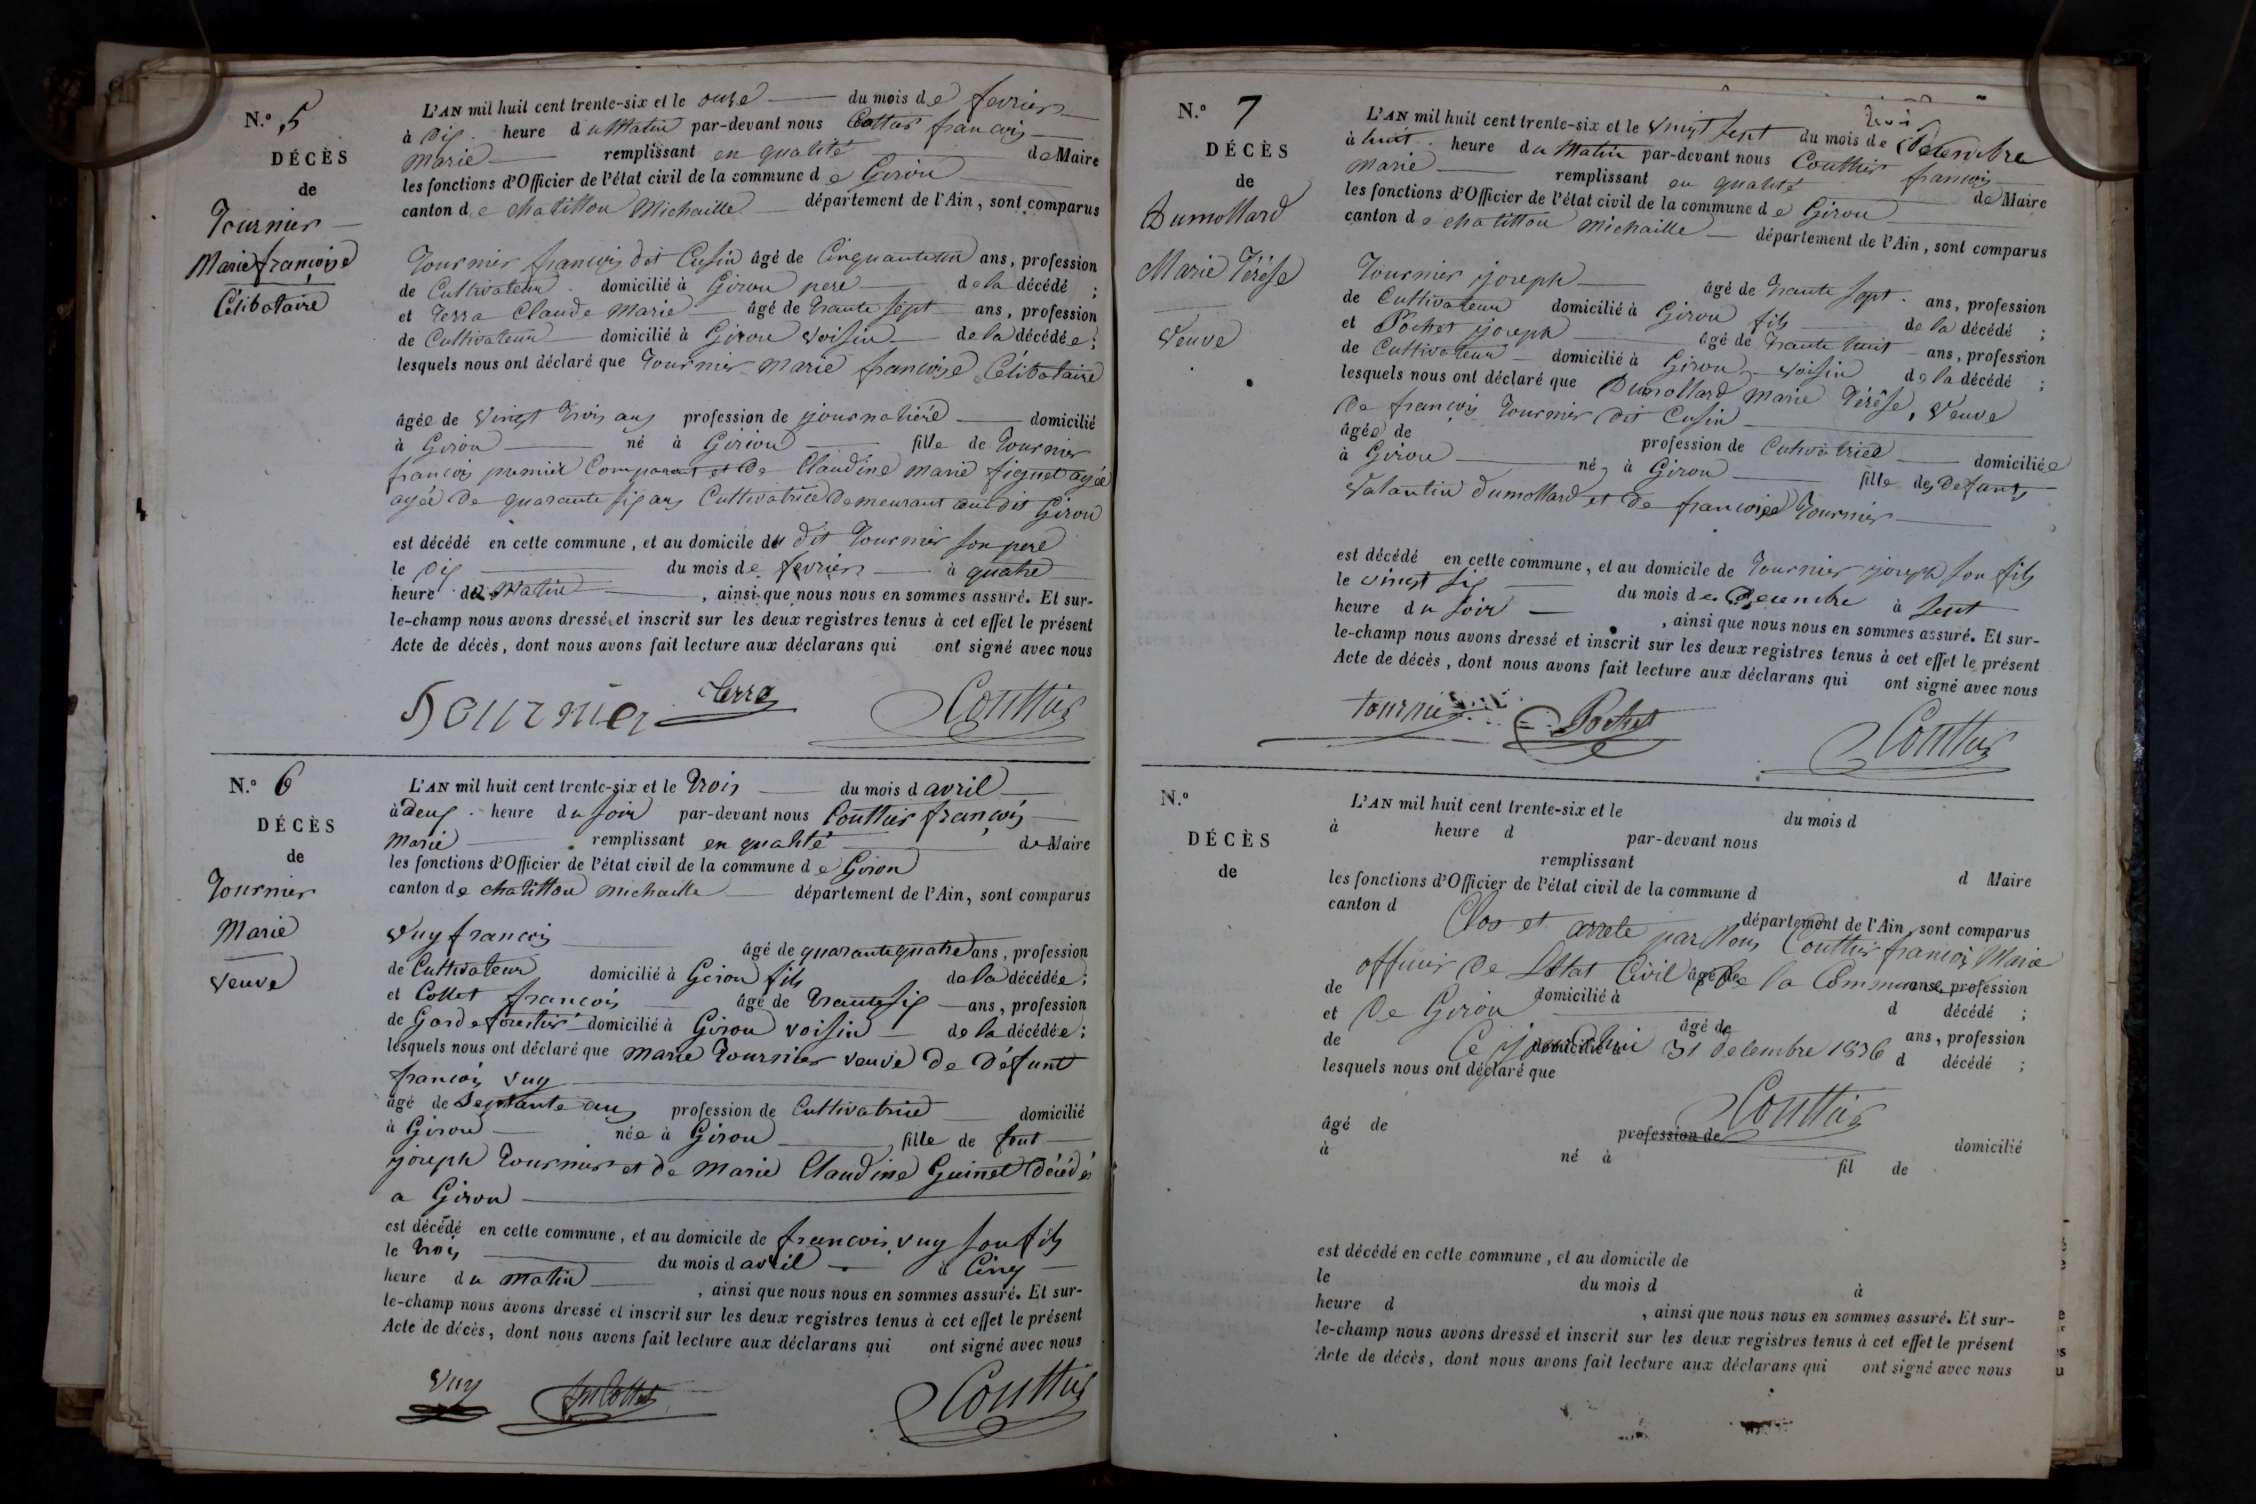 N.° 5
DÉCÈS
de
Tournier
Marie françoise
Célibataire
L'AN mil huit cent trente-six et le onze du mois de fevrier
à dix heure du Matin par-devant nous Couttier françois
marie remplissant en qualité de Maire
les fonctions d'Officier de l'état civil de la commune de Giron
canton de chatillon Michaille département de l'Ain, sont comparus
Tournier françois dit Cusin âgé de Cinquante un ans, profession
de Cultivateur domicilié à Giron pere de la décédé ;
et Terra Claude Marie âgé de trante sept ans, profession
de Cultivateur domicilié à Giron voisin de la décédée ;
lesquels nous ont déclaré que Tournier marie françoise Célibataire
âgée de vingt trois ans profession de journalière domicilié
à Giron né à Giron fille de Tournier
françois premier Comparant et de Claudine marie figuet agée
agée de quarante six ans Cultivatrice demeurant au dit Giron
est décédé en cette commune, et au domicile du dit Tournier son pere
le dix du mois de fevrier à quatre
heure du Matin , ainsi que nous nous en sommes assuré. Et sur-
le-champ nous avons dressé et inscrit sur les deux registres tenus à cet effet le présent
Acte de décès, dont nous avons fait lecture aux déclarans qui ont signé avec nous
Tournier Terra Couttier
N.° 6
DÉCÈS
de
Tournier
Marie
veuve
L'AN mil huit cent trente-six et le trois du mois d avril
à deux heure du soir par-devant nous Couttier françois
marie remplissant en qualité de Maire
les fonctions d'Officier de l'état civil de la commune de Giron
canton de chatillon michaille département de l'Ain, sont comparus
Vuy françois âgé de quarante quatre ans, profession
de Cultivateur domicilié à Giron fils de la décédée ;
et Collet françois âgé de trante six ans, profession
de Garde forestier domicilié à Giron voisin de la décédée ;
lesquels nous ont déclaré que marie Tournier veuve de défunt
françois vuy
âgé de septante ans profession de Cultivatrice domicilié
à Giron née à Giron fille de font
joseph Tournier et de marie Claudine Guinet décédés
a Giron
est décédé en cette commune, et au domicile de françois vuy son fils
le trois du mois d avril à Cinq
heure du matin , ainsi que nous nous en sommes assuré. Et sur-
le-champ nous avons dressé et inscrit sur les deux registres tenus à cet effet le présent
Acte de décès, dont nous avons fait lecture aux déclarans qui ont signé avec nous
Vuy Collet Couttier
N.° 7
DÉCÈS
de
Dumollard
Marie Térése
Veuve
L'AN mil huit cent trente-six et le vingt sept du mois de décembre
à huit heure du Matin par-devant nous Couttier françois
marie remplissant en qualité de Maire
les fonctions d'Officier de l'état civil de la commune de Giron
canton de chatillon michaille département de l'Ain, sont comparus
Tournier joseph âgé de trante sept ans, profession
de Cultivateur domicilié à Giron fils de la décédé ;
et Pochet joseph âgé de trante huit ans, profession
de Cultivateur domicilié à Giron voisin de la décédé ;
lesquels nous ont déclaré que Dumollard marie Térése, veuve
de françois Tournier dit Cusin
âgée de profession de Cultivatrice domiciliée
à Giron né à Giron fille des defants
Valantin dumollard et de françoise Tournier
est décédé en cette commune, et au domicile de Tournier joseph son fils
le vingt six du mois de decembre à sept
heure du soir , ainsi que nous nous en sommes assuré. Et sur-
le-champ nous avons dressé et inscrit sur les deux registres tenus à cet effet le présent
Acte de décès, dont nous avons fait lecture aux déclarans qui ont signé avec nous
tournier Pochet Couttier
N.°
DÉCÈS
de
L'AN mil huit cent trente-six et le du mois d
à heure d par-devant nous
remplissant d Maire
les fonctions d'Officier de l'état civil de la commune d
canton d département de l'Ain, sont comparus
Clos et arrete par Nous Couttier françois Marie
officier de l'Etat Civil de la Commune
de âgé de ans, profession
de Giron
et domicilié à d décédé ;
de âgé de ans, profession
Ce jourdhui 31 décembre 1836
domicilié à d décédé ;
lesquels nous ont déclaré que
Couttier
âgé de profession de domicilié
à né à fil de
est décédé en cette commune, et au domicile de
le du mois d à
heure d , ainsi que nous nous en sommes assuré. Et sur-
le-champ nous avons dressé et inscrit sur les deux registres tenus à cet effet le présent
Acte de décès, dont nous avons fait lecture aux déclarans qui ont signé avec nous